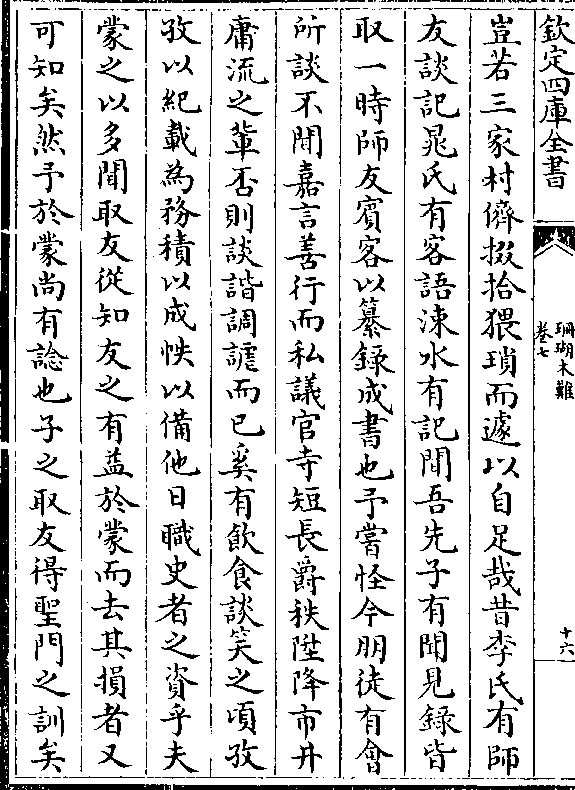 欽定四庫全書
珊瑚木難
卷七
十六
豈若三家村儕掇拾猥瑣而遽以自足哉昔李氏有師
友談記晁氏有客語涑水有記聞吾先子有聞見錄皆
取一時師友賓客以纂錄成書也予嘗怪今朋徒有會
所談不聞嘉言善行而私議官寺短長爵秩陞降市井
庸流之輩否則談諧調謔而已奚有飲食談笑之頃孜
孜以紀載為務積以成帙以備他日職史者之資乎夫
蒙之以多聞取友從知友之有益於蒙而去其損者又
可知矣然予於蒙尚有諗也子之取友得聖門之訓矣